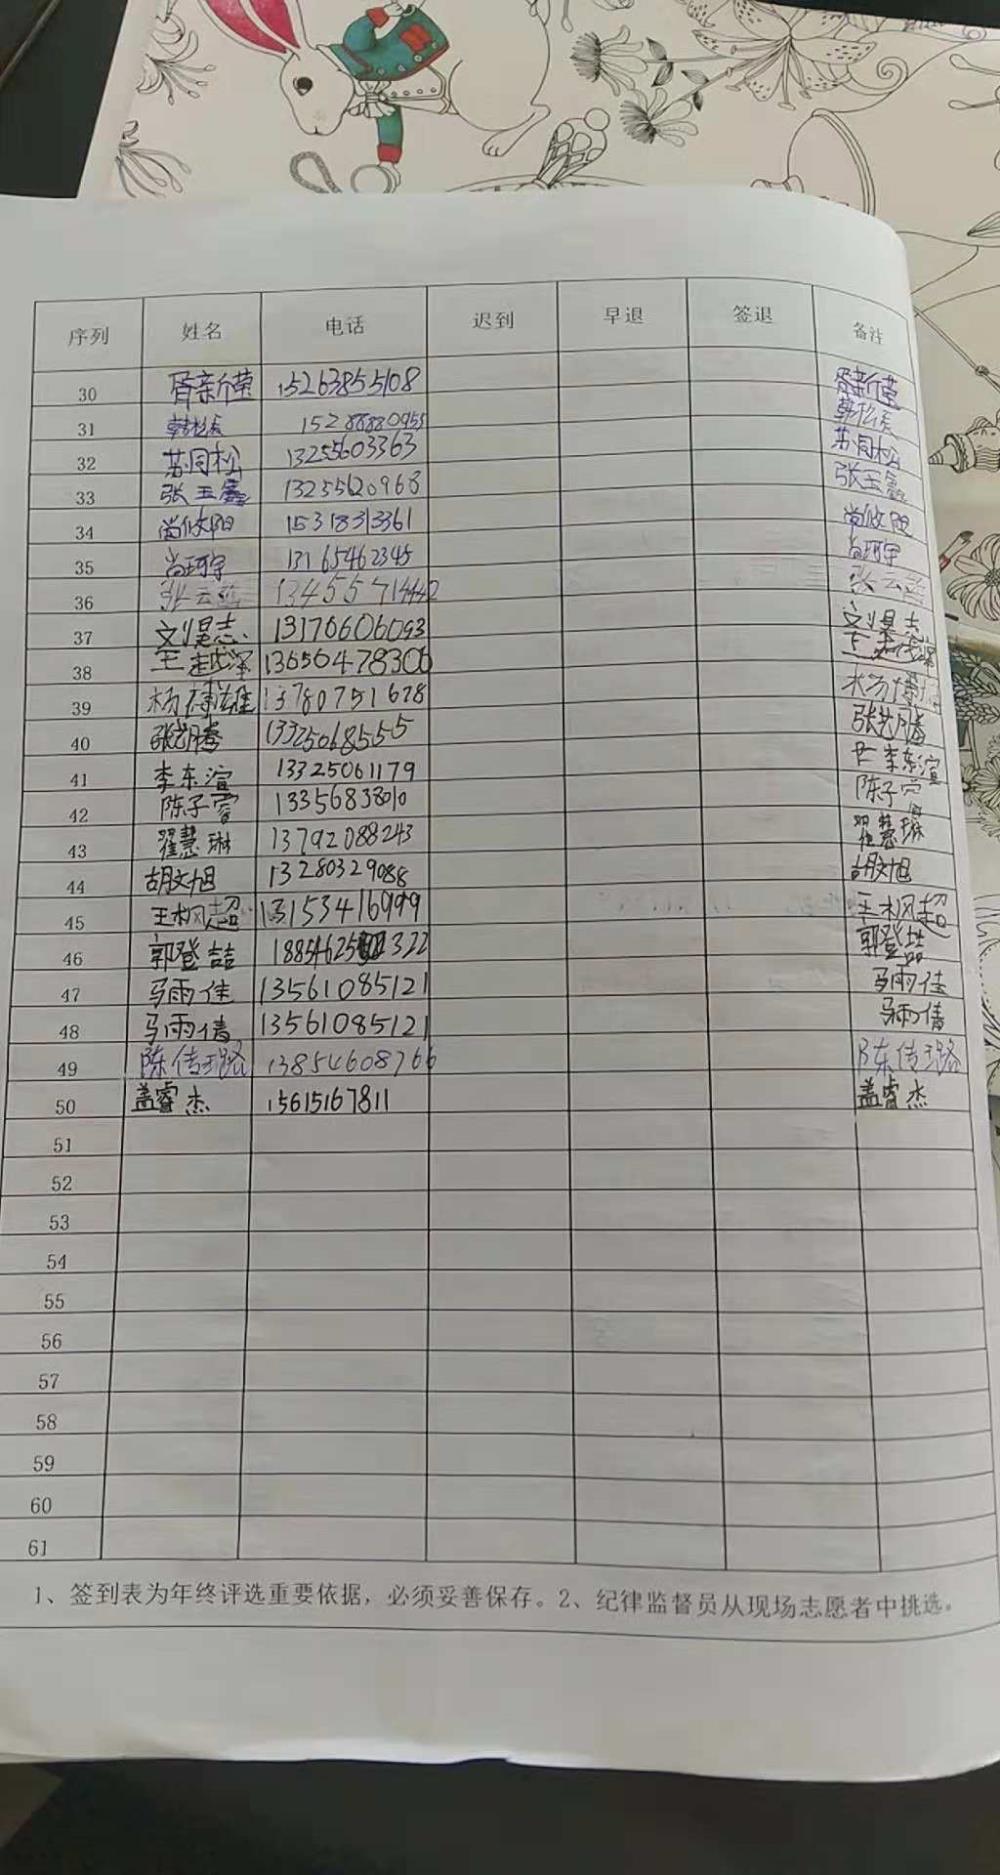 序列 姓名 电话 迟到 早退 签退 备注
30 胥新莹 15263855108 胥新莹
31 韩松辰 15288880955 韩松辰
32 苏同松 13255603363 苏同松
33 张玉鑫 13255620968 张玉鑫
34 尚攸阳 15318313361 尚攸阳
35 尚珂宇 13165462345 尚珂宇
36 张云 13455714442 张云
37 刘昊志 13170606093 刘昊志
38 王越泽 13656478306 王越泽
39 杨博雄 13780751678 杨博
40 张艺腾 13325068555 张艺腾
41 李东渲 13325061179 李东渲
42 陈子睿 13356838010 陈子睿
43 翟慧琳 13792088243 翟慧琳
44 胡文旭 13280329088 胡文旭
45 王枫超 13153416999 王枫超
46 郭登喆 18854625322 郭登喆
47 马雨佳 13561085121 马雨佳
48 马雨倩 13561085121 马雨倩
49 陈传璐 13854608766 陈传璐
50 盖睿杰 15615167811 盖睿杰
51
52
53
54
55
56
57
58
59
60
61
1、签到表为年终评选重要依据，必须妥善保存。2、纪律监督员从现场志愿者中挑选。